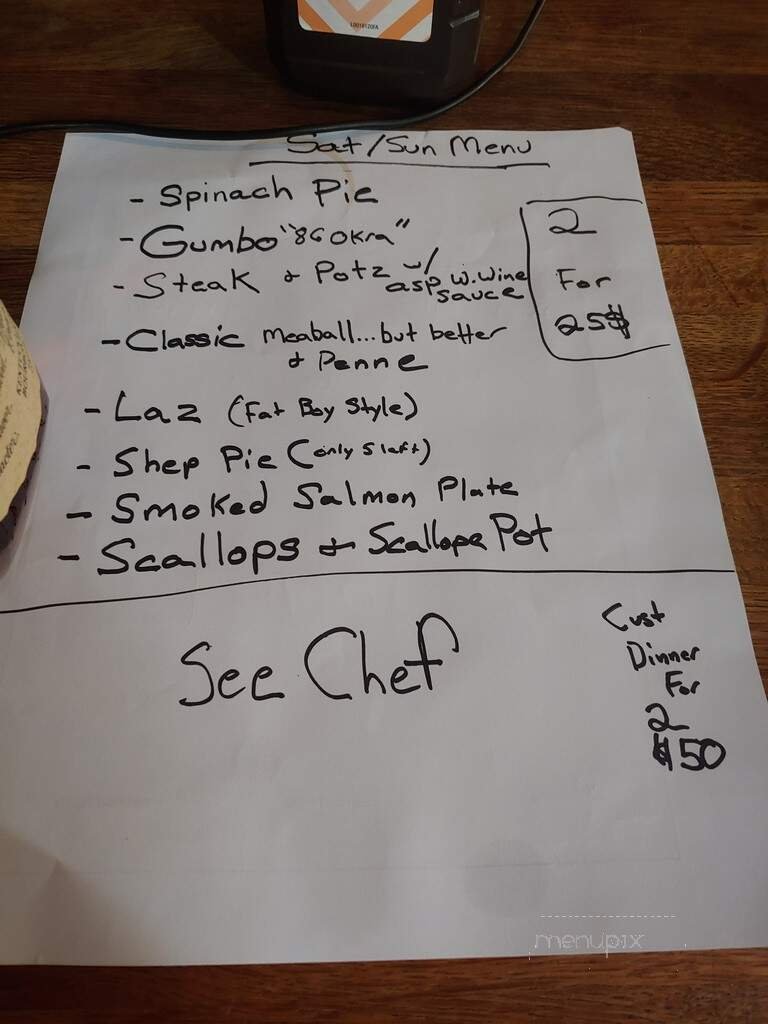 L0018120FA
Sat/Sun Menu
- Spinach Pie
- Gumbo "86 Okra"
- Steak & Potz w/ asp w.wine
sauce
2
For
25$
- Classic Meaball...but better
& Penne
- Laz (Fat Boy Style)
- Shep Pie (only 5 left)
- Smoked Salmon Plate
- Scallops & Scallope Pot
See Chef
Cust
Dinner
For
2
$150
menupix